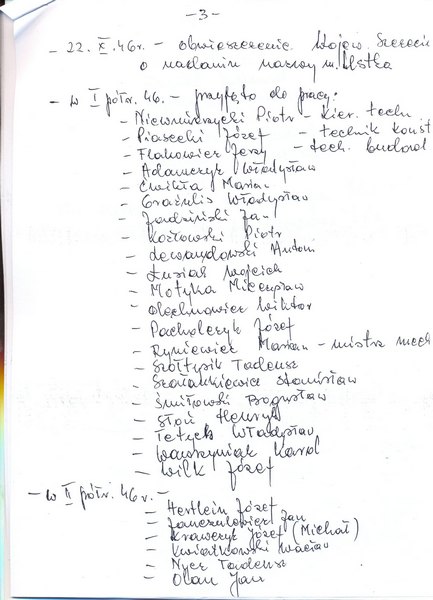 - 3 -
- 22. X. 46r. - obwieszczenie Wojew. Szczeciń
o nadaniu nazwy m. Ustka
- w I półr. 46. - przyjęto do pracy:
- Piotr - kier. techn
- Piasecki Józef - technik konst
- Jerzy - tech. budowl
- Adamczyk Władysław
- Ćwikła Marian
- Grażulis Władysław
- Jan
- Kozłowski Piotr
- Lewandowski Antoni
- Łusiak Wojciech
- Motyka Mieczysław
- Olechnowicz Wiktor
- Pacholczyk Józef
- Ryniewicz Marian - mistrz mech
- Szołtysik Tadeusz
- Stanisław
- Śmiłowski Bogusław
- Słoń Henryk
- Tetych Władysław
- Wawrzyniak Karol
- Wilk Józef
- w II półr. 46r. -
- Hertlein Józef
- Jan
- Krawczyk Józef (Michał)
- Kwiatkowski Wacław
- Nycz Tadeusz
- Olan Jan